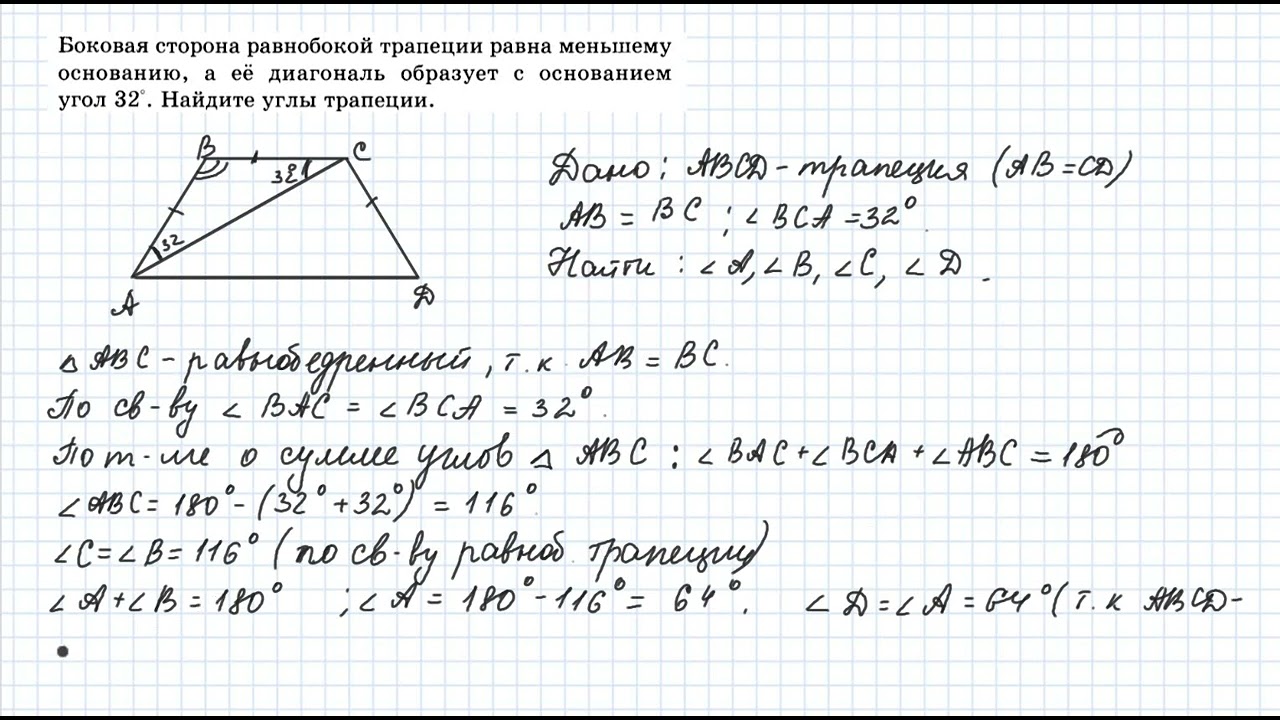 Боковая сторона равнобокой трапеции равна меньшему
основанию, а её диагональ образует с основанием
угол 32°. Найдите углы трапеции.
B
C
32°
32
A
D
Дано: ABCD - трапеция (AB = CD)
AB = BC ; ∠ BCA = 32°.
Найти : ∠ A, ∠ B, ∠ C, ∠ D .
△ ABC - равнобедренный, т.к AB = BC.
По св-ву ∠ BAC = ∠ BCA = 32°.
По т-ме о сумме углов △ ABC : ∠ BAC + ∠ BCA + ∠ ABC = 180°
∠ ABC = 180° - (32° + 32°) = 116°.
∠ C = ∠ B = 116° (по св-ву равноб. трапеции)
∠ A + ∠ B = 180° ; ∠ A = 180° - 116° = 64°. ∠ D = ∠ A = 64° (т.к ABCD -